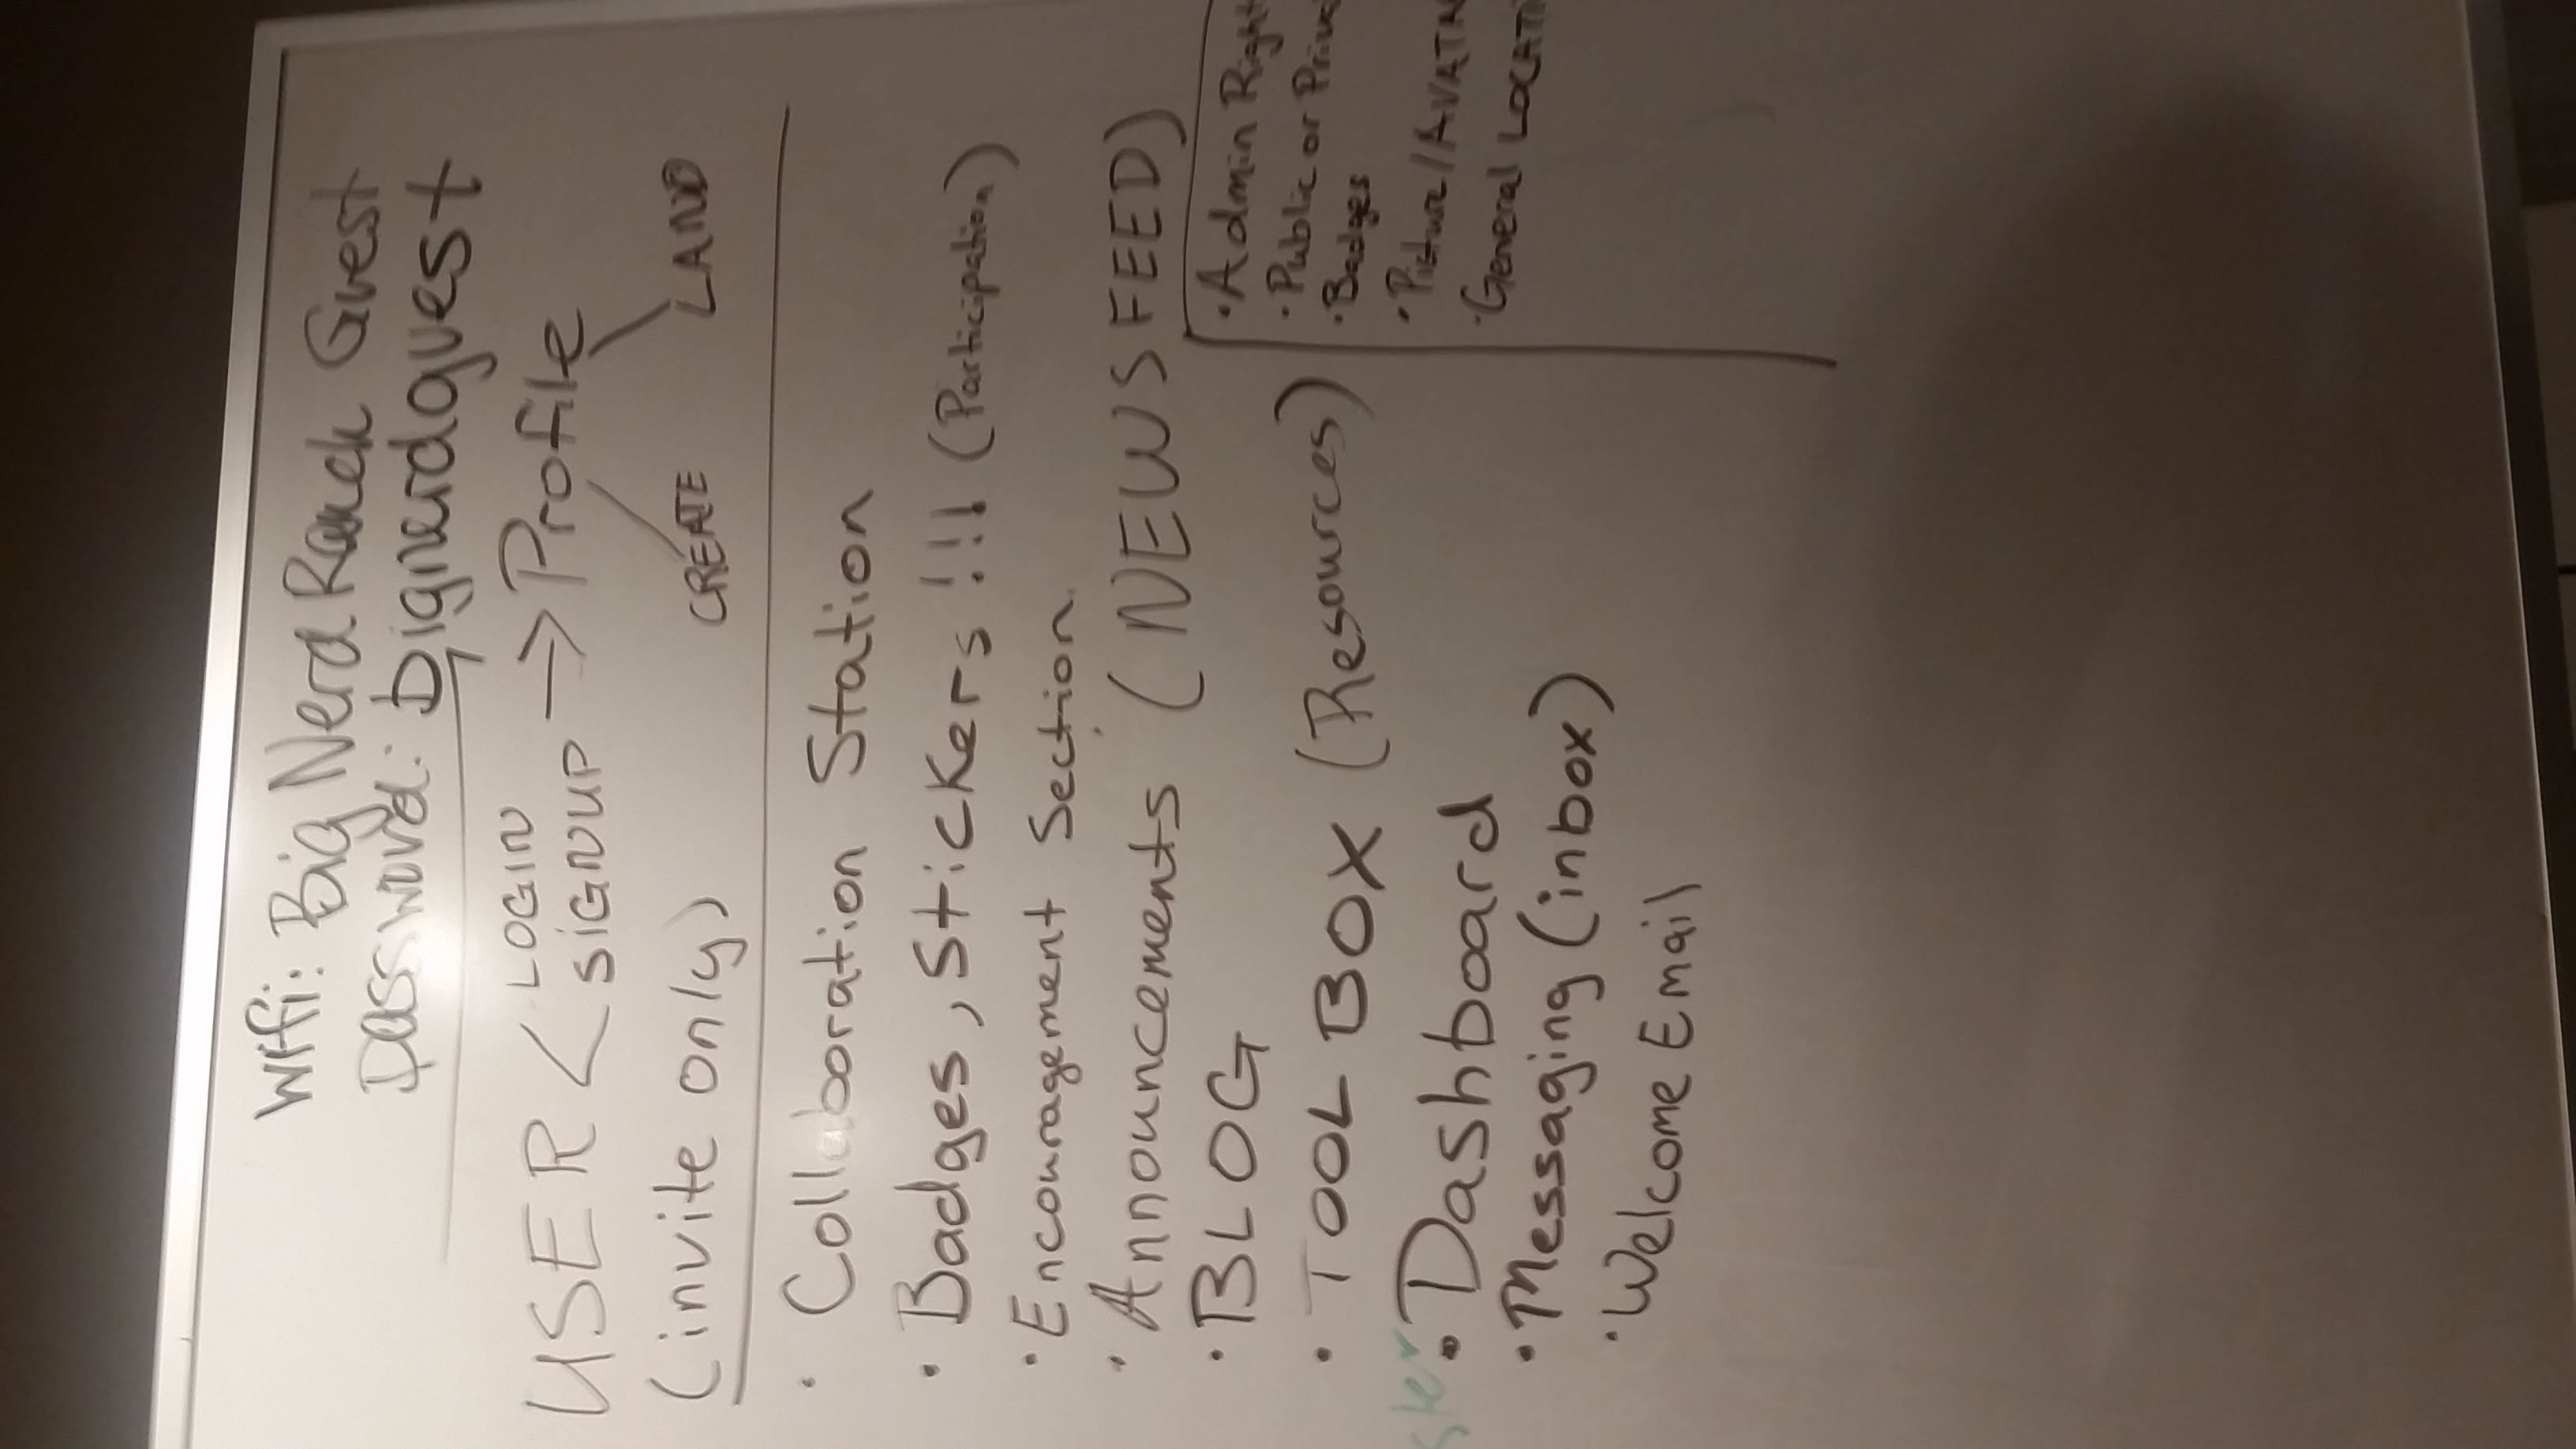 Wifi: Big Nerd Ranch Guest
Password: bignerdguest
USER < LOGIN
SIGNUP → Profile
(invite only)
CREATE LAND
• Collaboration Station
• Badges, Stickers !!! (Participation)
• Encouragement Section
• Announcements (NEWSFEED)
• BLOG
• TOOL BOX (Resources)
• Dashboard
• Messaging (inbox)
• Welcome Email
• Admin Right
• Public or Priva
• Badges
• Picture/AVATA
• General LOCATI